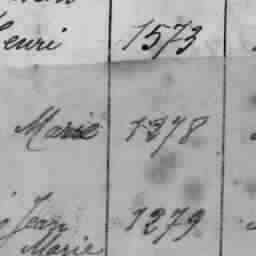 Henri 1573
Marie 1378
Jean 1279
Marie